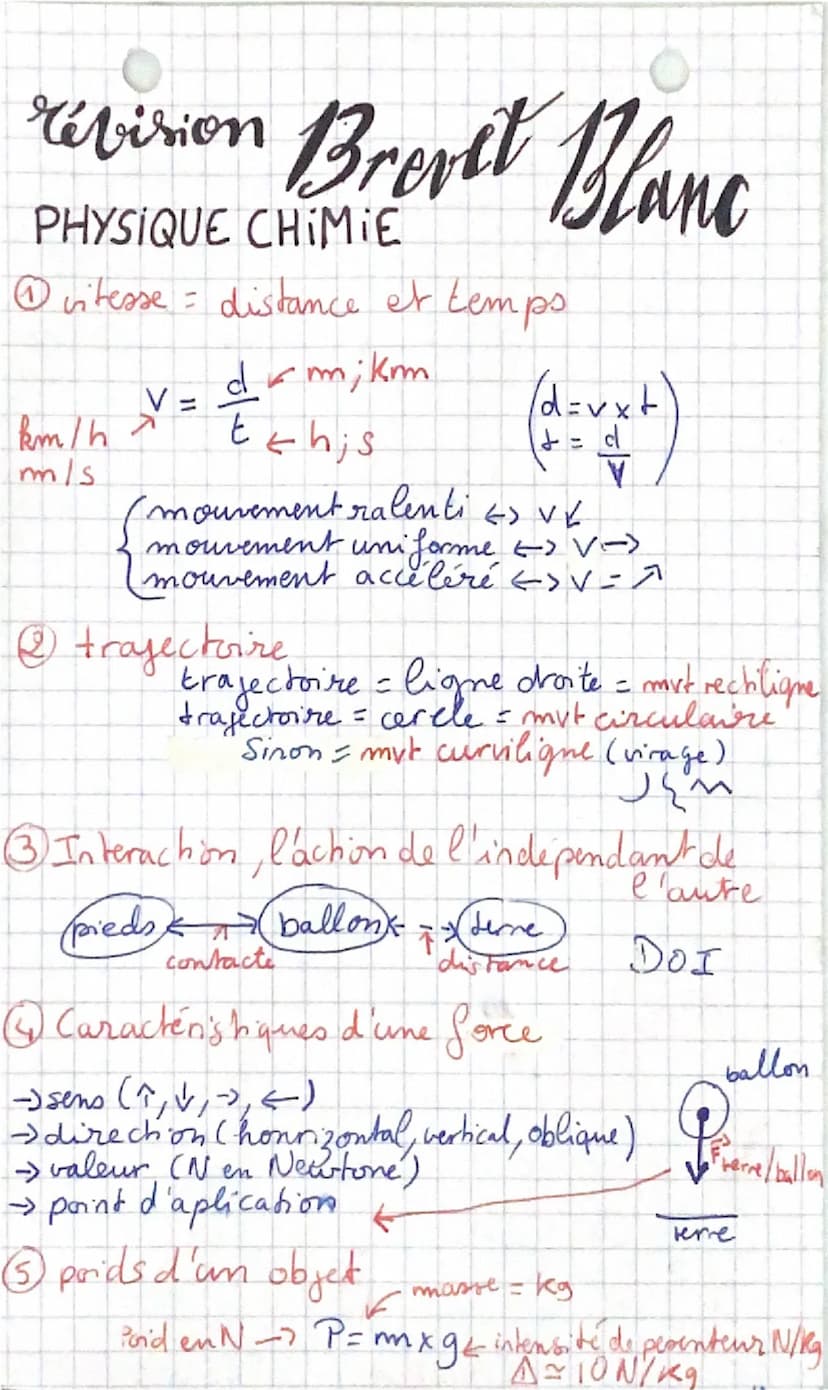 révision Brevet Blanc
PHYSIQUE CHIMIE
① vitesse = distance et temps
V = d/t ← m ; km
← h ; s
km/h
m/s
(d = v x t
t = d/V)
mouvement ralenti <-> V ↙
mouvement uniforme <-> V →
mouvement accéléré <-> V = ↗
② trajectoire
trajectoire = ligne droite = mvt rectiligne
trajectoire = cercle = mvt circulaire
Sinon = mvt curviligne (virage)
③ Interaction, l'action de l'indépendant de
l'autre
pieds <-> ballon <--> terre
contacte distance DOI
④ Caractéristiques d'une force
→ sens (↑, ↓, →, ←)
→ direction (honrizontal, vertical, oblique)
→ valeur (N en Newtone)
→ point d'aplication
ballon
F terre/ballon
terre
⑤ poids d'un objet
masse = kg
Poid en N → P = m x g ← intensité de pesenteur N/kg
⚠ ≃ 10 N/kg